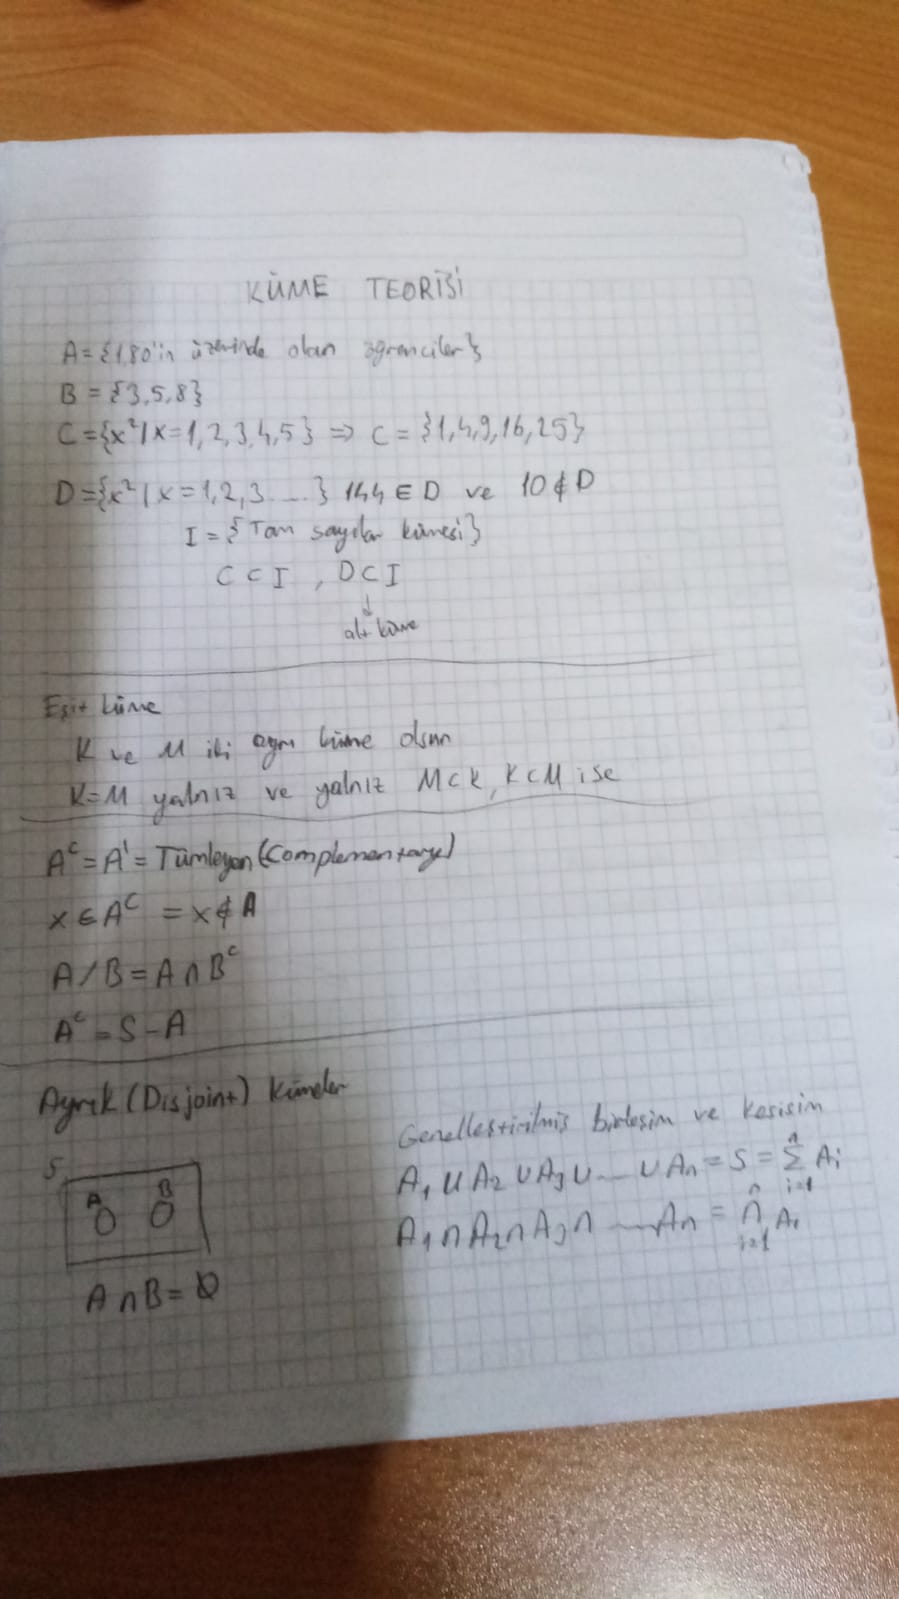 KÜME TEORİSİ
A = {1,80'in üzerinde olan öğrenciler}
B = {3,5,8}
C = {x² / x = 1,2,3,4,5} ⇒ C = {1,4,9,16,25}
D = {x² / x = 1,2,3.....} 144 ∈ D ve 10 ∉ D
I = {Tam sayılar kümesi}
C ⊂ I , D ⊂ I
↓
alt küme
Eşit küme
K ve M iki ayrı küme olsun
K=M yalnız ve yalnız M⊂K, K⊂M ise
Aᶜ = A' = Tümleyen (Complementary)
x ∈ Aᶜ = x ∉ A
A / B = A ∩ Bᶜ
Aᶜ = S - A
Ayrık (Disjoint) Kümeler
S
A B
A ∩ B = ∅
Genelleştirilmiş birleşim ve kesisim
A₁ ∪ A₂ ∪ A₃ ∪ .... ∪ Aₙ = S = ⁿΣᵢ₌₁ Aᵢ
A₁ ∩ A₂ ∩ A₃ ∩ .... Aₙ = ⁿ∩ᵢ₌₁ Aᵢ